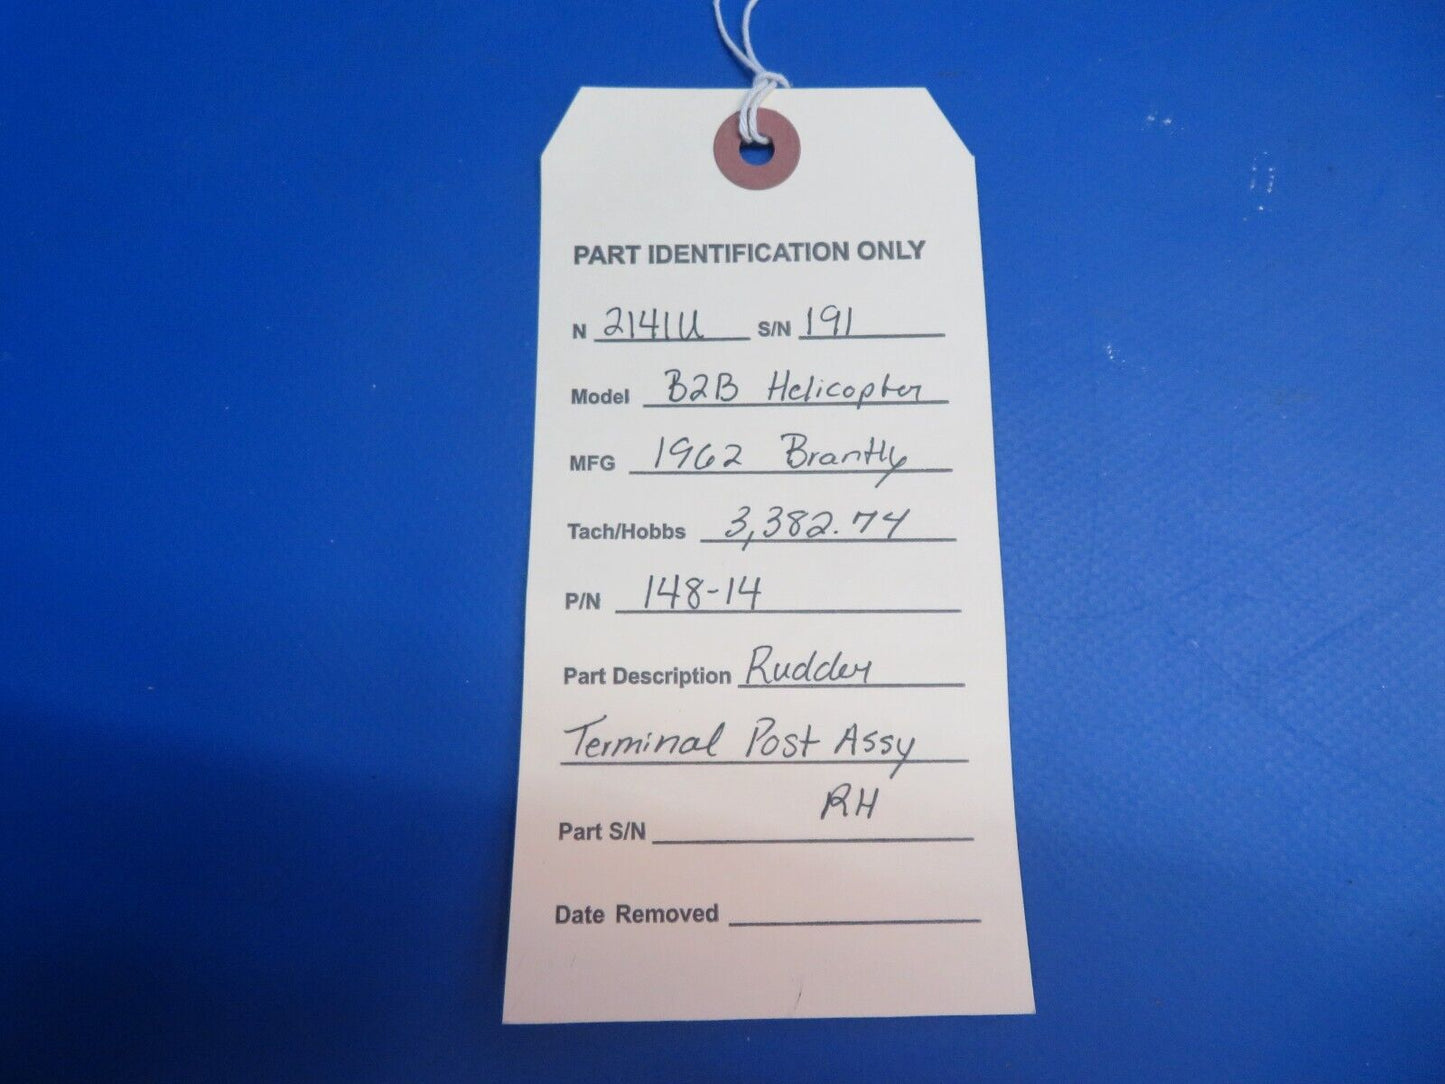 PART IDENTIFICATION ONLY
N 2141U S/N 191
Model B2B Helicopter
MFG 1962 Brantly
Tach/Hobbs 3,382.74
P/N 148-14
Part Description Rudder
Terminal Post Assy
RH
Part S/N
Date Removed